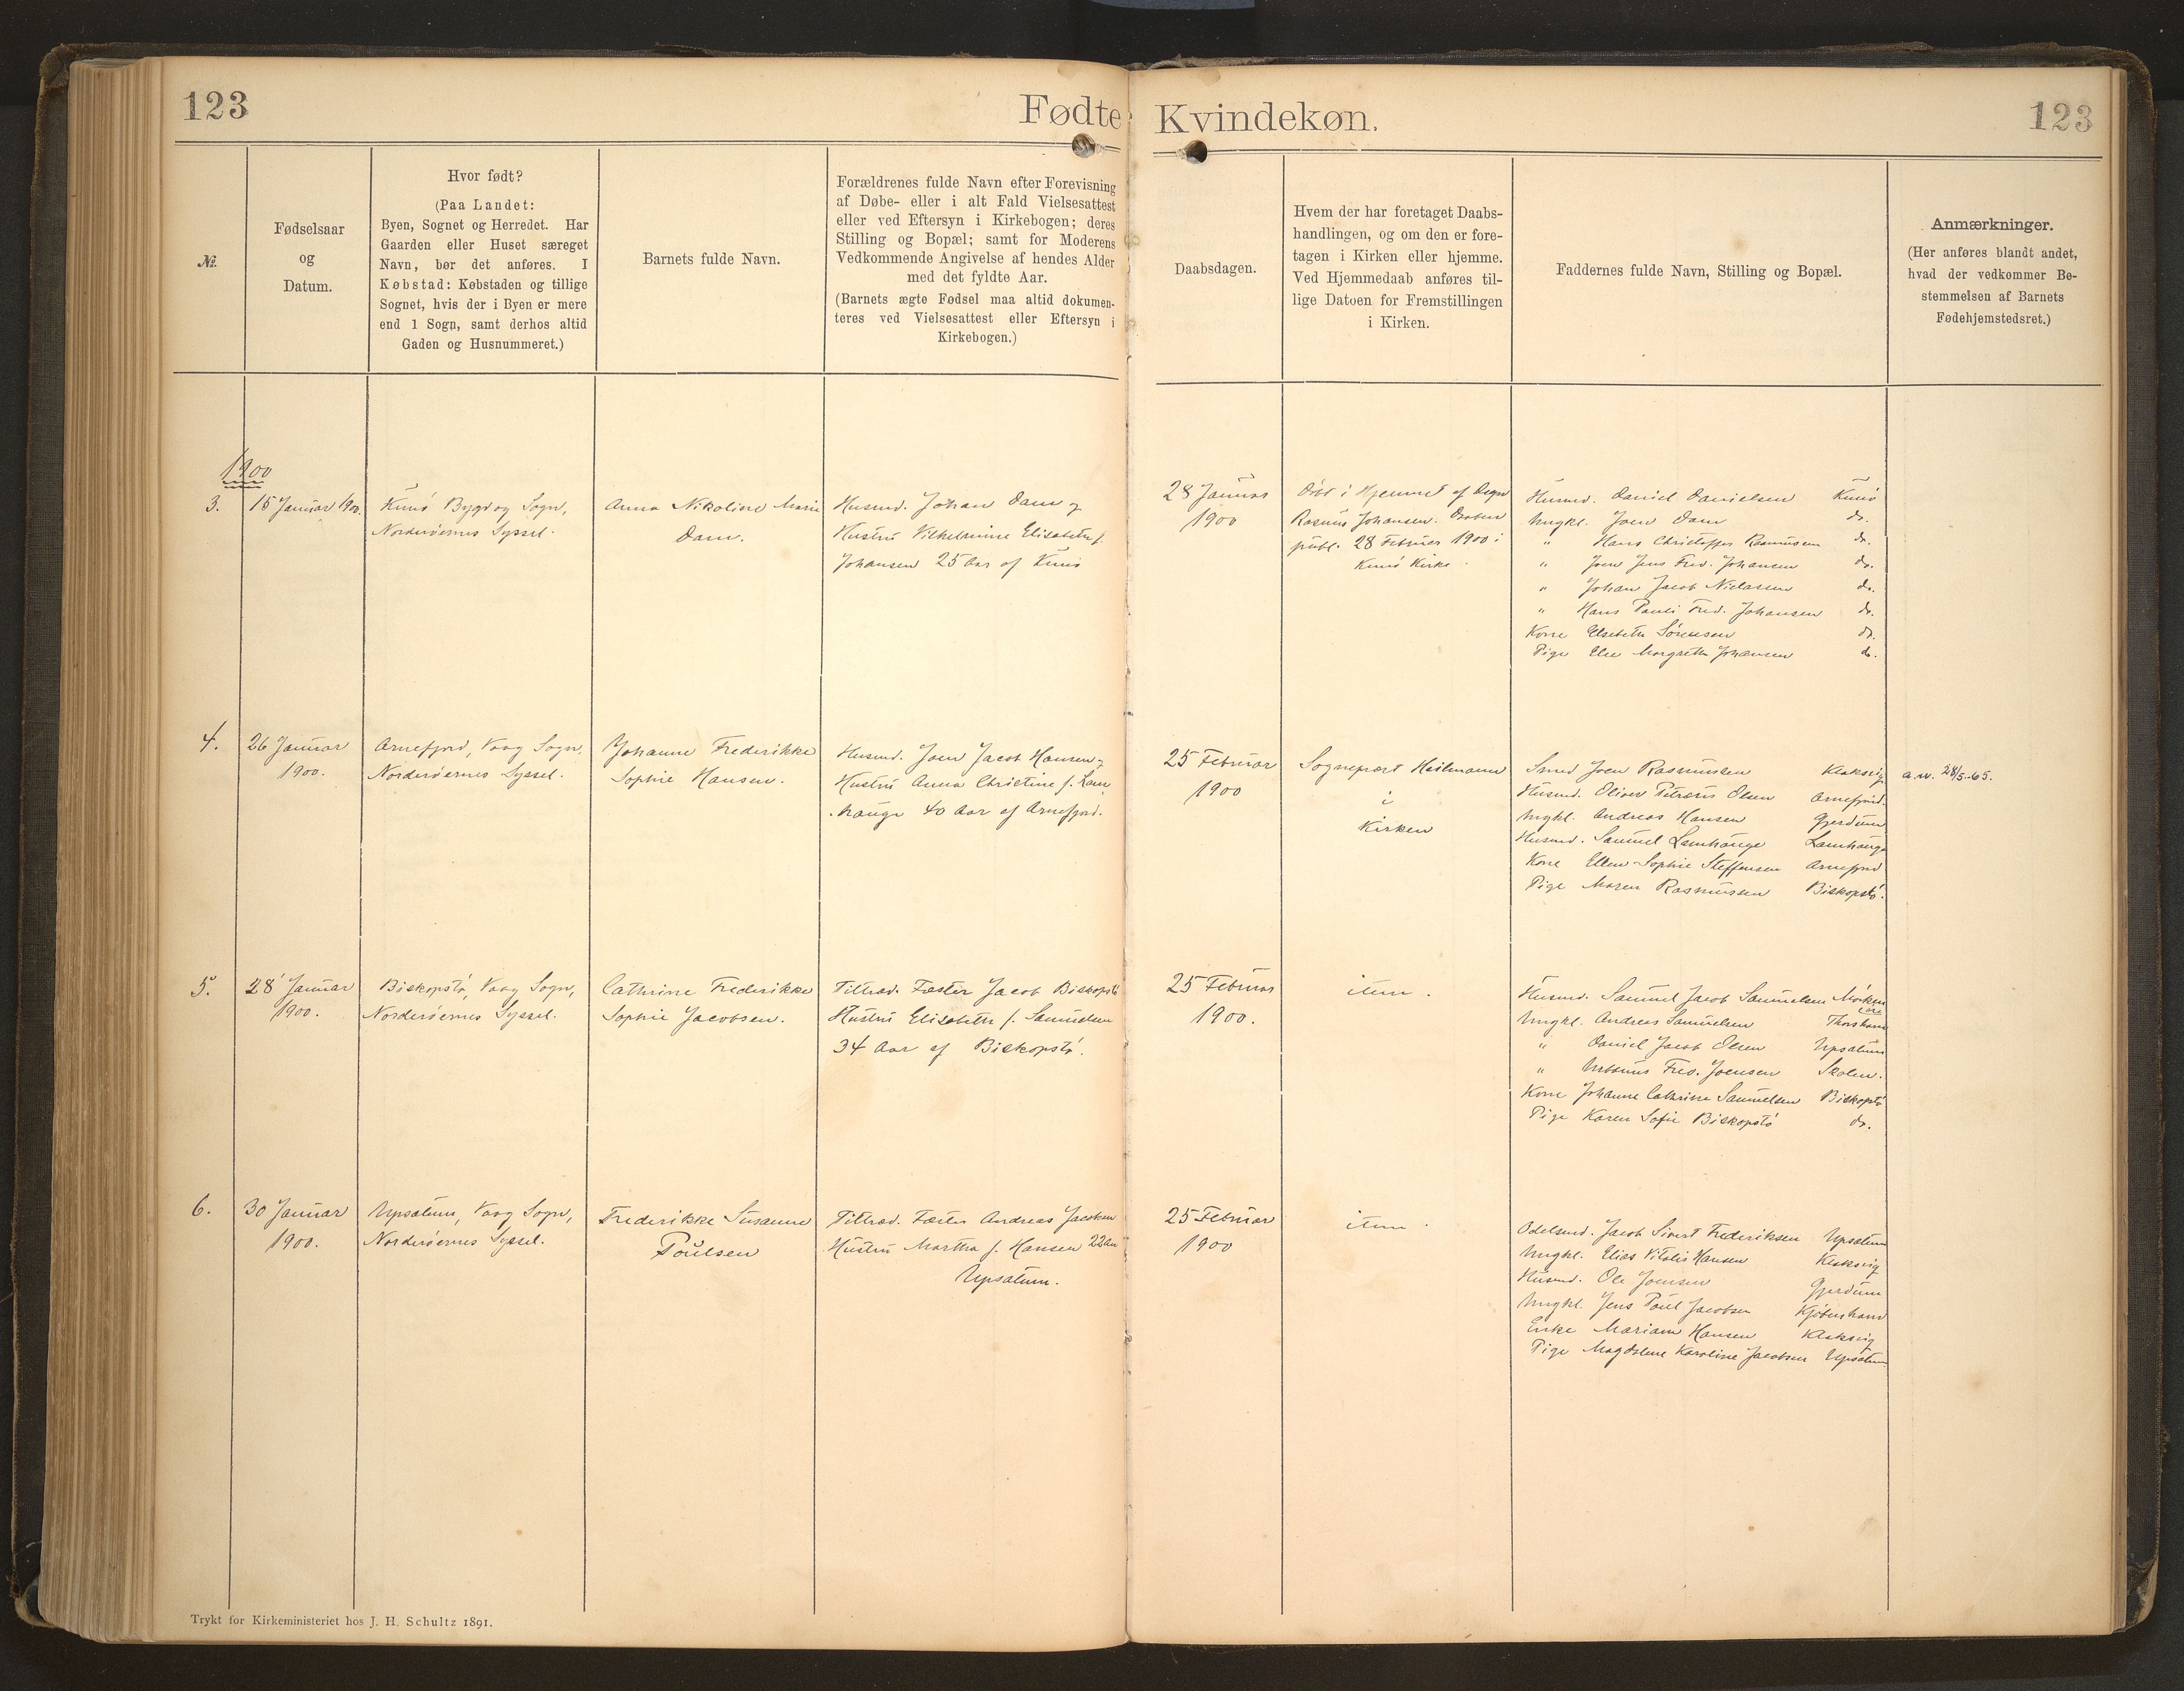 123
Fødte
Kvindekøn.
123
№
Fødselsaar
og
Datum.
Hvor født?
(Paa Landet:
Byen, Sognet og Herredet. Har
Gaarden eller Huset særeget
Navn, bør det anføres. I
Købstad: Købstaden og tillige
Sognet, hvis der i Byen er mere
end 1 Sogn, samt derhos altid
Gaden og Husnummeret.)
Barnets fulde Navn.
Forældrenes fulde Navn efter Forevisning
af Døbe- eller i alt Fald Vielsesattest
eller ved Eftersyn i Kirkebogen; deres
Stilling og Bopæl; samt for Moderens
Vedkommende Angivelse af hendes Alder
med det fyldte Aar.
(Barnets ægte Fødsel maa altid dokumen-
teres ved Vielsesattest eller Eftersyn i
Kirkebogen.)
Daabsdagen.
Hvem der har foretaget Daabs-
handlingen, og om den er fore-
tagen i Kirken eller hjemme.
Ved Hjemmedaab anføres til-
lige Datoen for Fremstillingen
i Kirken.
Faddernes fulde Navn, Stilling og Bopæl.
Anmærkninger.
(Her anføres blandt andet,
hvad der vedkommer Be-
stemmelsen af Barnets
Fødehjemstedsret.)
1900
3.
15 Januar 1900.
Kunø Bygd og Sogn,
Norderøernes Syssel.
Anna Nikoline Marie
Dam.
Husmd. Johan Dam og
Hustru Vilhelmine Elisabeth f.
Johansen 25 Aar af Kunø
28 Januar
1900
Døbt i Hjemmet af Degn
Rasmus Johansen. Daaben
publ. 28 Februar 1900 i
Kunø Kirke.
Husmd. Daniel Danielsen Kunø
Ungkl. Joen Dam do.
" Hans Christoffer Rasmussen do.
" Joen Jens Fred. Johansen do.
" Johan Jacob Niclassen do.
" Hans Pauli Fred. Johansen do.
Kone Elsebeth Sørensen do.
Pige Else Margrethe Johansen do.
4.
26 Januar
1900.
Arnefjord, Vaag Sogn,
Norderøernes Syssel.
Johanne Frederikke
Sophie Hansen.
Husmd. Joen Jacob Hansen og
Hustru Anna Christine f. Lam
hauge 40 Aar af Arnefjord.
25 Februar
1900
Sognepræst Heilmann
i
Kirken
Smed Joen Rasmussen Klaksvig
Husmd. Oliver Petræus Olsen Arnefjord.
Ungkl. Andreas Hansen Gjerdum
Husmd. Samuel Lamhauge Lamhauge
Kone Ellen Sophie Steffensen Arnefjord
Pige Maren Rasmussen Biskopstø.
a.w. 28/5-65.
5.
28 Januar
1900.
Biskopstø, Vaag Sogn,
Norderøernes Syssel.
Cathrine Frederikke
Sophie Jacobsen.
Tiltræd. Fæster Jacob Biskopstø
Hustru Elisabeth f. Samuelsen
34 Aar af Biskopstø.
25 Februar
1900.
item.
Husmd. Samuel Jacob Samuelsen Mørken
Ungkl. Andreas Samuelsen Thorshavn
" Daniel Jacob Olsen Upsalum
" Urbanus Fred. Joensen Skolen.
Kone Johanne Cathrine Samuelsen Biskopstø
Pige Karen Sofie Biskopstø do.
6.
30 Januar
1900.
Upsalum, Vaag Sogn,
Norderøernes Syssel.
Frederikke Susanne
Poulsen
Tiltræd. Fæster Andreas Jacobsen
Hustru Martha f. Hansen 22 Aar
Upsalum.
25 Februar
1900
item.
Odelsmd. Jacob Sivert Frederiksen Upsalum
Ungkl. Elias Vitalis Hansen Klaksvig
Husmd. Ole Joensen Gjerdum
Ungkl. Jens Poul Jacobsen Kjøbenhavn
Enke Mariann Hansen Klaksvig
Pige Magdalene Karoline Jacobsen Upsalum
Trykt for Kirkeministeriet hos J. H. Schultz 1891.